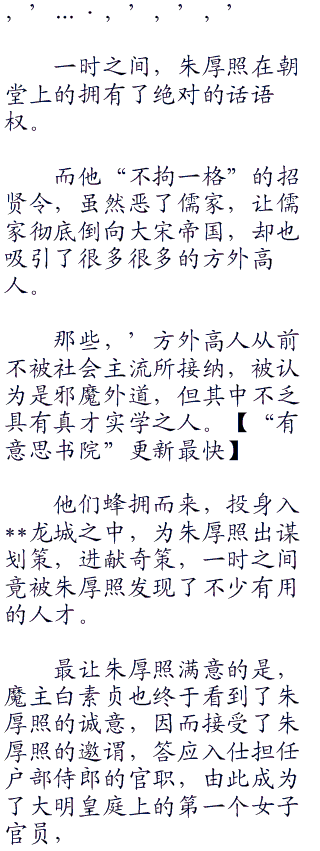 ，’…·，’，’，’
一时之间，朱厚照在朝
堂上的拥有了绝对的话语
权。
而他“不拘一格”的招
贤令，虽然恶了儒家，让儒
家彻底倒向大宋帝国，却也
吸引了很多很多的方外高
人。
那些，’方外高人从前
不被社会主流所接纳，被认
为是邪魔外道，但其中不乏
具有真才实学之人。【“有
意思书院”更新最快】
他们蜂拥而来，投身入
**龙城之中，为朱厚照出谋
划策，进献奇策，一时之间
竟被朱厚照发现了不少有用
的人才。
最让朱厚照满意的是，
魔主白素贞也终于看到了朱
厚照的诚意，因而接受了朱
厚照的邀谓，答应入仕担任
户部侍郎的官职，由此成为
了大明皇庭上的第一个女子
官员，